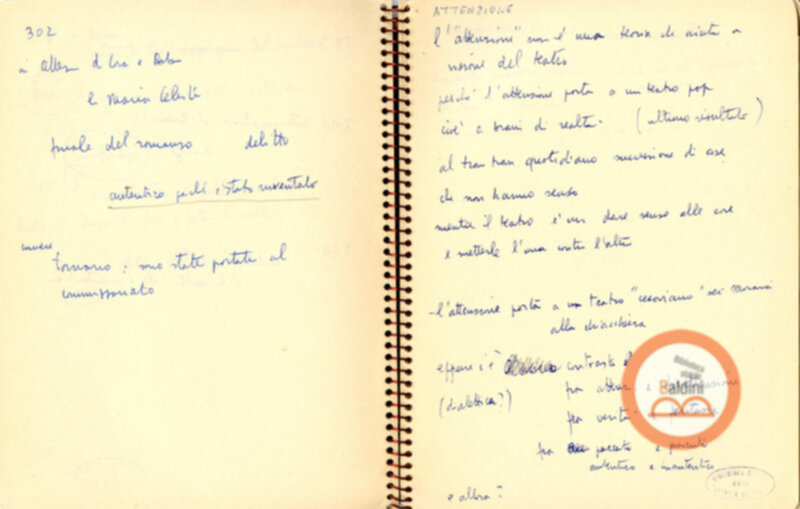 302
e Maria Celeste
finale del romanzo delitto
autentico perché è stato inventato
invece
tornano: sono state portate al
commissariato
ATTENZIONE
l'"attenzione" non è una teoria che aiuta a
visione del teatro
perché l'attenzione porta a un teatro pop
cioè a brani di realtà (ultimo risultato)
al tran tran quotidiano successione di cose
che non hanno senso
mentre il teatro è un dare senso alle cose
e metterle l'una contro l'altra
- l'attenzione porta a un teatro "cecoviano"
alla chiacchiera
eppure c'è contrasto
(dialettica?)
fra verità e
fra passato e presente
autentico e inautentico
e allora?
Biblioteca
Baldini